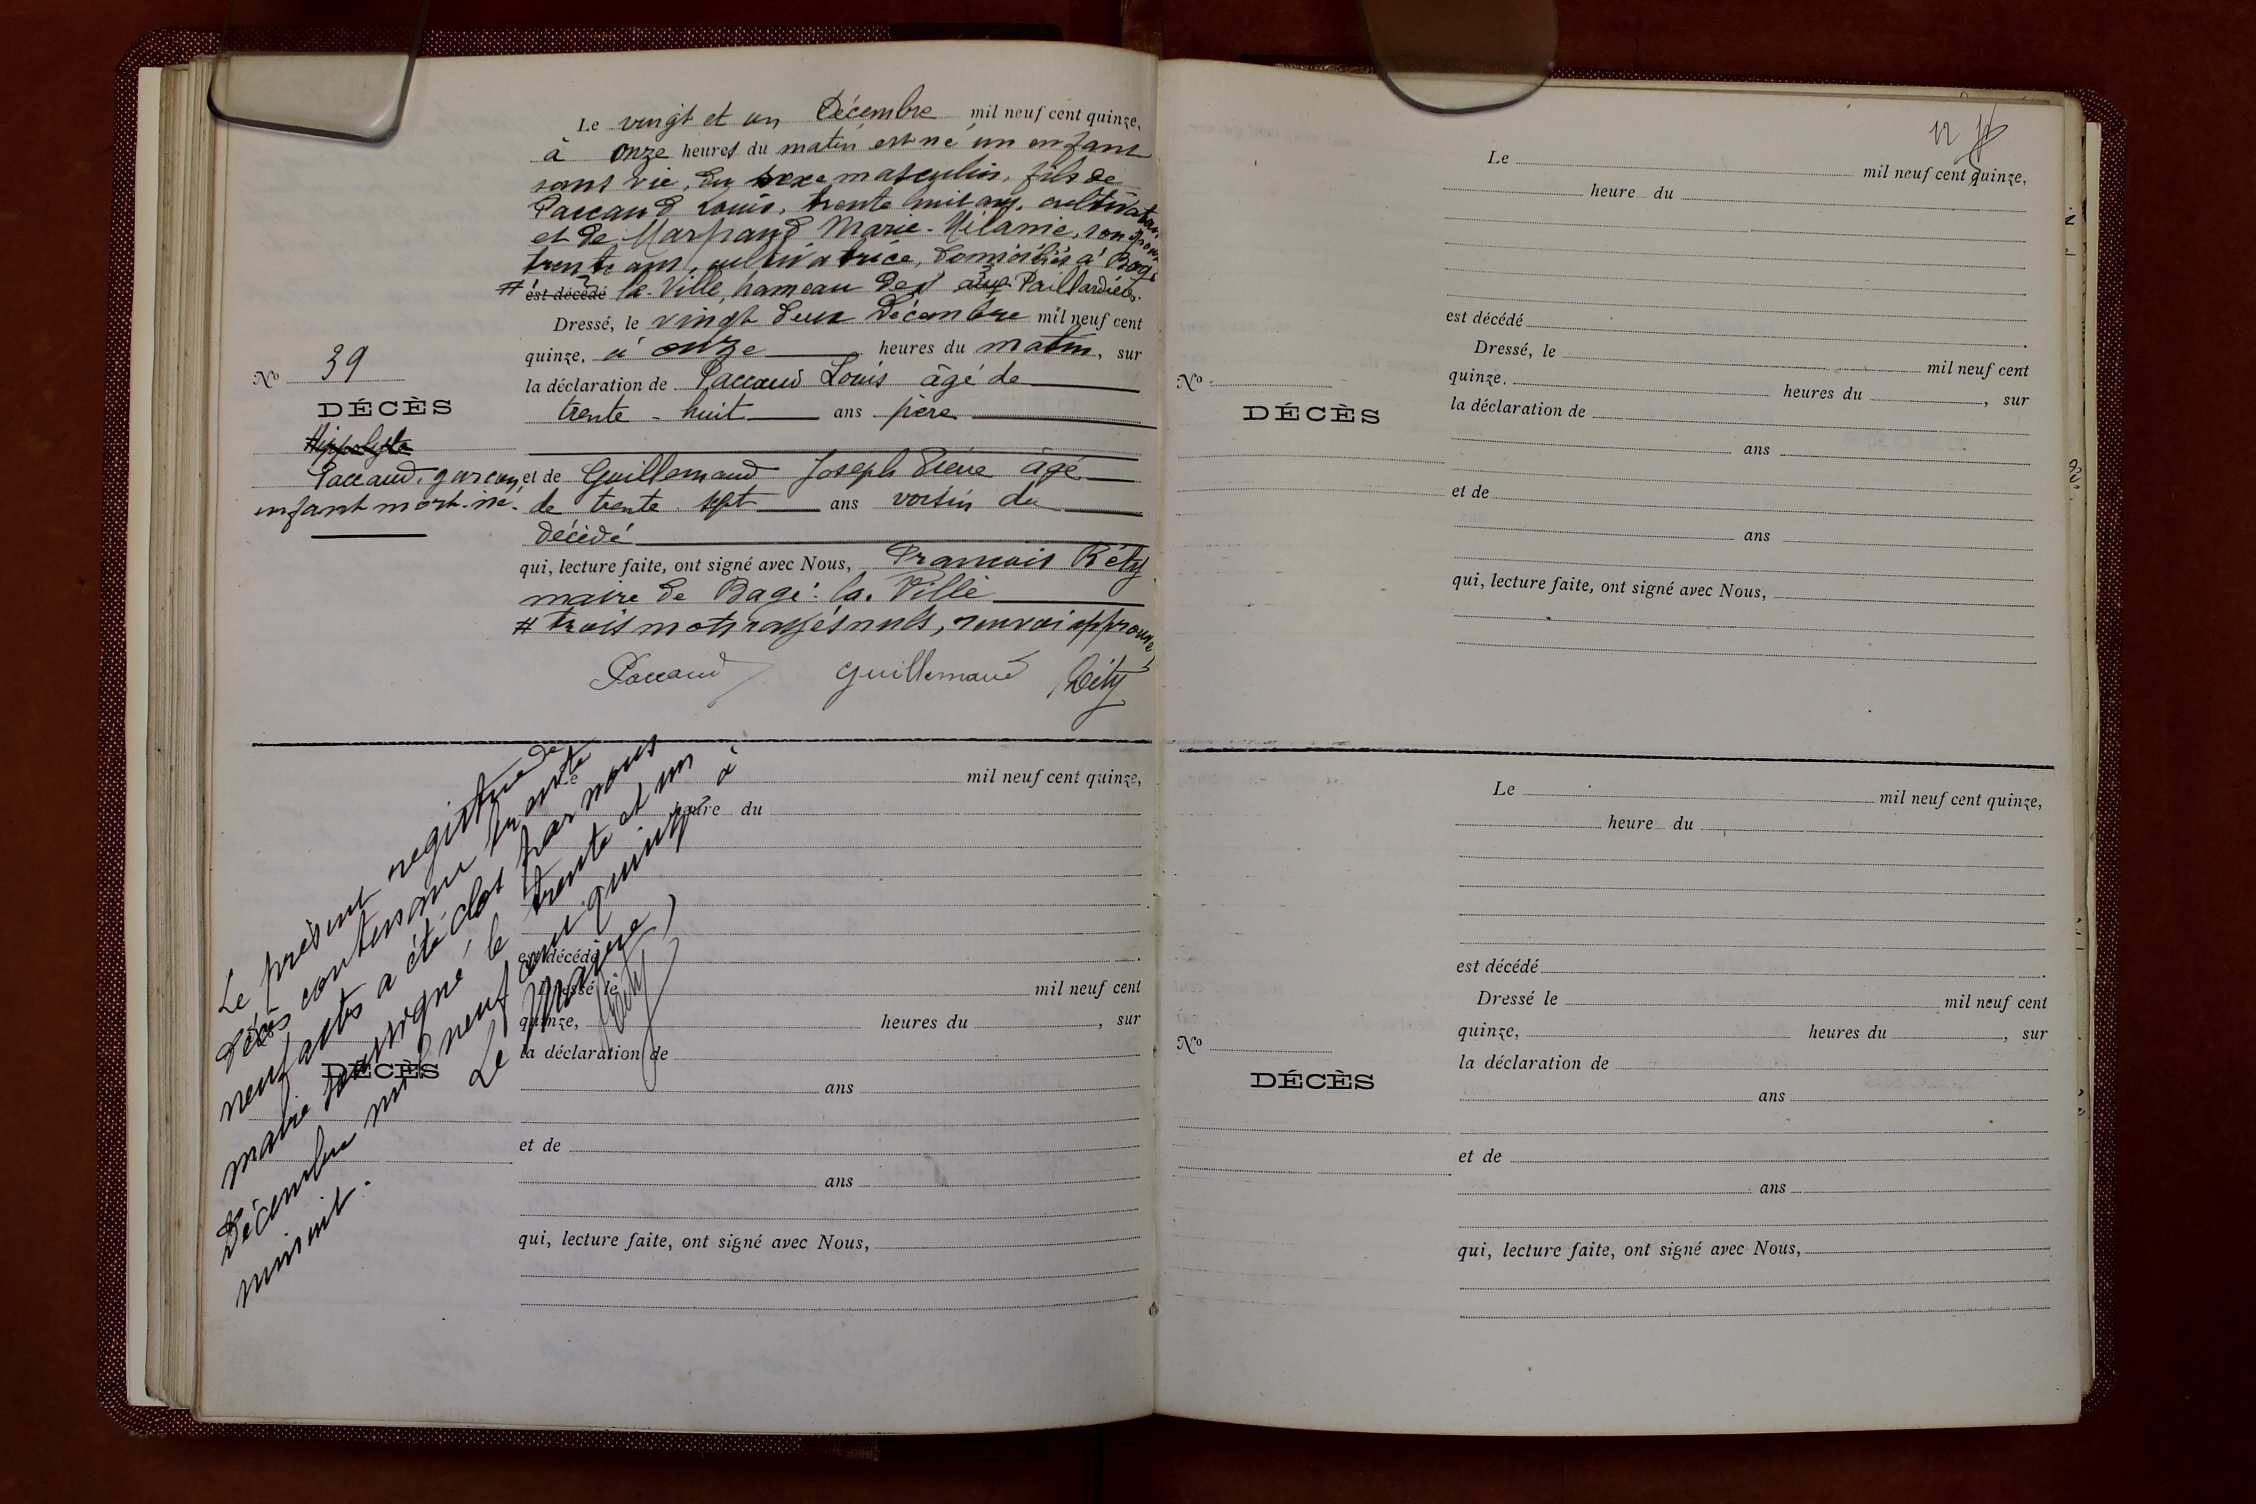 Le vingt et un Décembre mil neuf cent quinze,
à onze heures du matin est né un enfant
sans vie, du sexe masculin, fils de
Paccaud Louis, trente huit ans, cultivateur
et de Marpaud Marie-Mélanie, son épouse
trente ans, cultivatrice, domiciliés à Bagé
# est décédé la-Ville, hameau des Paillardières.
Dressé, le vingt deux Décembre mil neuf cent
quinze, à onze heures du matin, sur
la déclaration de Paccaud Louis âgé de
trente-huit ans père
et de Guillemaud Joseph Pierre âgé
de trente-sept ans voisin du
décédé
qui, lecture faite, ont signé avec Nous, François Réty
maire de Bagé-la-Ville
# trois mots rayés nuls, renvoi approuvé
Paccaud Guillemaud Réty
No 39
DÉCÈS
Hippolyte
Paccaud, garçon
enfant mort-né.
Le présent registre de
Décès contenant trente
neuf actes a été clos par nous
maire soussigné, le trente et un
Décembre mil neuf cent quinze à
minuit.
Le Maire,
Réty
mil neuf cent quinze,
heure du
est décédé
Dressé le mil neuf cent
quinze, heures du , sur
la déclaration de
ans
et de
ans
qui, lecture faite, ont signé avec Nous,
DÉCÈS
12
Le mil neuf cent quinze,
heure du
est décédé
Dressé, le mil neuf cent
quinze. heures du , sur
la déclaration de
ans
et de
ans
qui, lecture faite, ont signé avec Nous,
No
DÉCÈS
Le mil neuf cent quinze,
heure du
est décédé
Dressé le mil neuf cent
quinze, heures du , sur
la déclaration de
ans
et de
ans
qui, lecture faite, ont signé avec Nous,
No
DÉCÈS